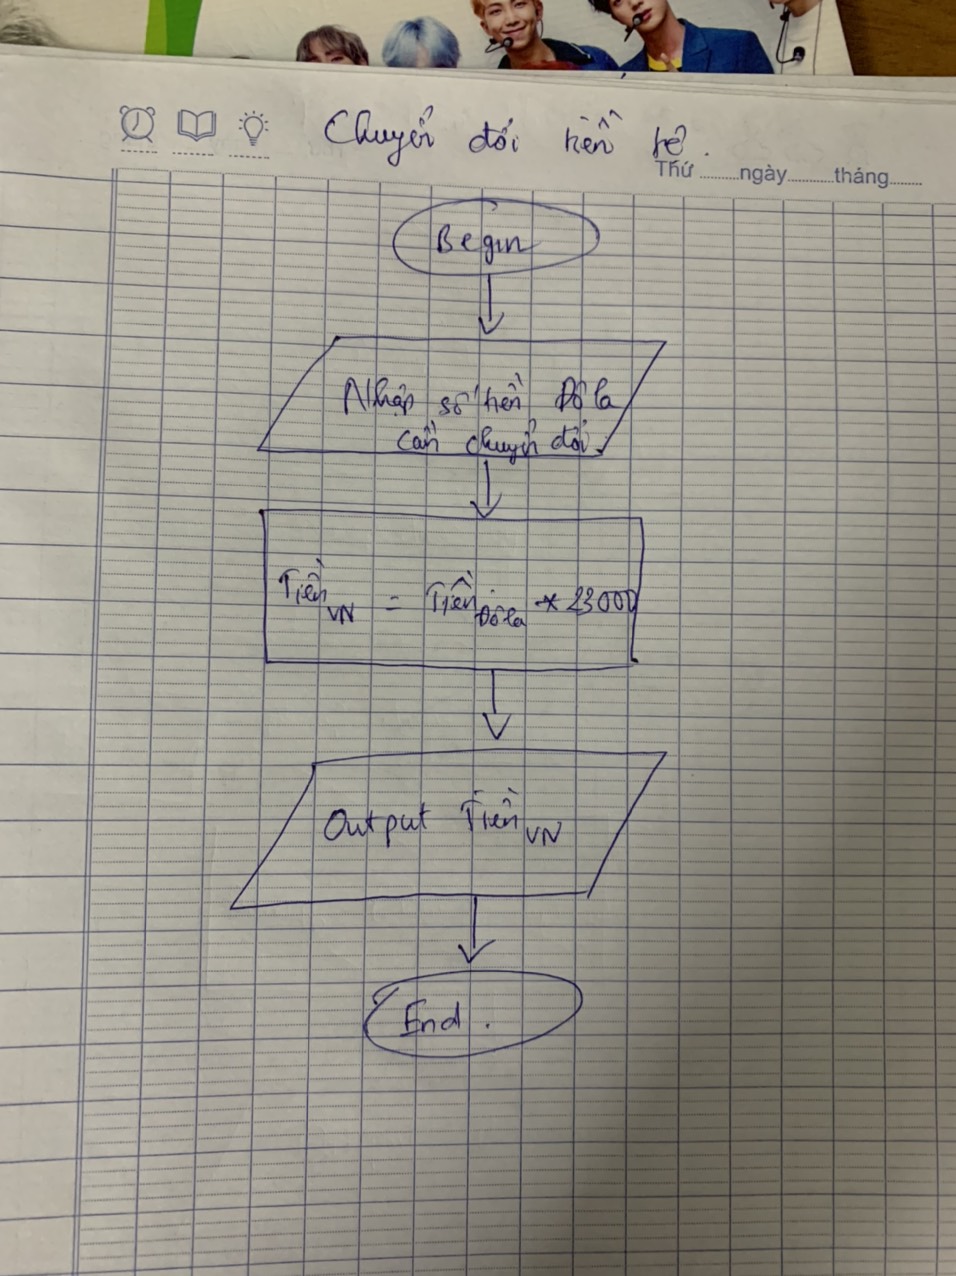 Chuyển đổi tiền tệ.
Thứ ........ngày.........tháng.......
Begin
Nhập số tiền Đô la
cần chuyển đổi.
Tiền VN = Tiền Đô la * 23000
Output Tiền VN
End.